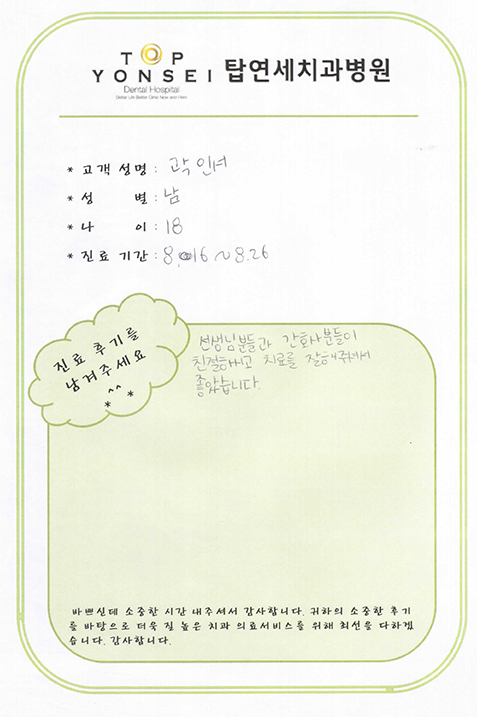 TOP
YONSEI 탑연세치과병원
Dental Hospital
Better Life Better Clinic Now and Here
* 고객 성명 : 곽인서
* 성 별 : 남
* 나 이 : 18
* 진료 기간 : 8.16 ~ 8.26
진료 후기를
남겨주세요
^^
* *
선생님분들과 간호사분들이
친절하시고 치료를 잘해주셔서
좋았습니다.
바쁘실텐데 소중한 시간 내주셔서 감사합니다. 귀하의 소중한 후기
를 바탕으로 더욱 질 높은 치과 의료서비스를 위해 최선을 다하겠
습니다. 감사합니다.